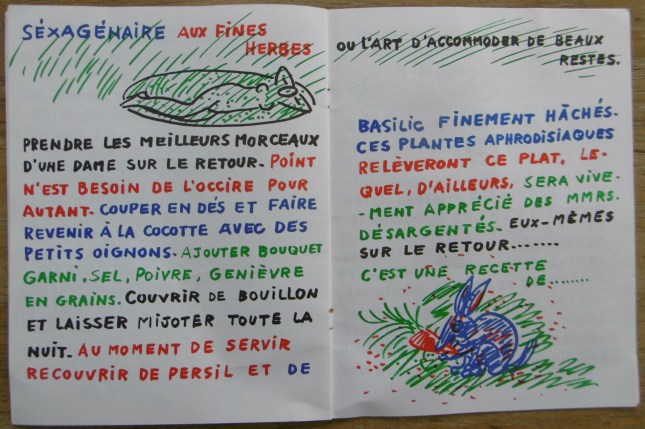 SÉXAGÉNAIRE AUX FINES
HERBES
PRENDRE LES MEILLEURS MORCEAUX
D'UNE DAME SUR LE RETOUR. POINT
N'EST BESOIN DE L'OCCIRE POUR
AUTANT. COUPER EN DÉS ET FAIRE
REVENIR À LA COCOTTE AVEC DES
PETITS OIGNONS. AJOUTER BOUQUET
GARNI, SEL, POIVRE, GENIÈVRE
EN GRAINS. COUVRIR DE BOUILLON
ET LAISSER MIJOTER TOUTE LA
NUIT. AU MOMENT DE SERVIR
RECOUVRIR DE PERSIL ET DE
OU L'ART D'ACCOMMODER DE BEAUX
RESTES.
BASILIC FINEMENT HÂCHÉS.
CES PLANTES APHRODISIAQUES
RELÈVERONT CE PLAT, LE-
QUEL, D'AILLEURS, SERA VIVE-
-MENT APPRÉCIÉ DES MMRS.
DÉSARGENTÉS. EUX-MÊMES
SUR LE RETOUR.......
C'EST UNE RECETTE
DE........